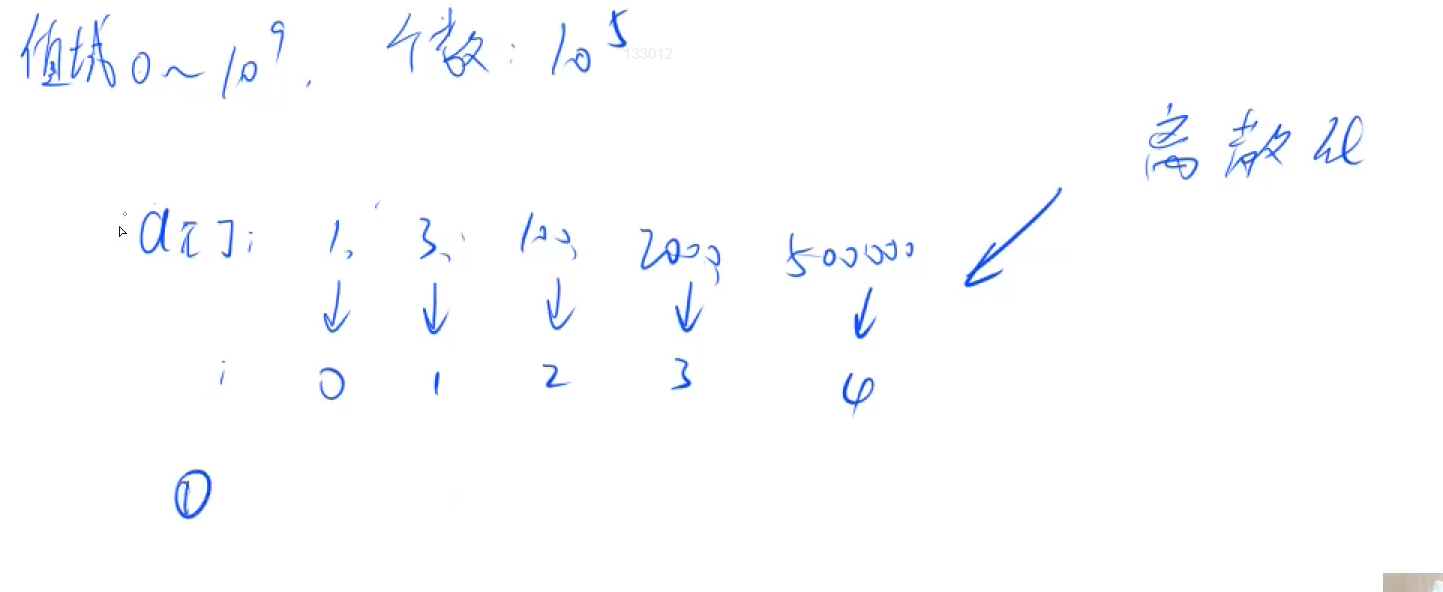 值域 0~10⁹, 个数: 10⁵
133012
离散化
a[]: 1, 3, 100, 2000, 500000
↓ ↓ ↓ ↓ ↓
i 0 1 2 3 4
①